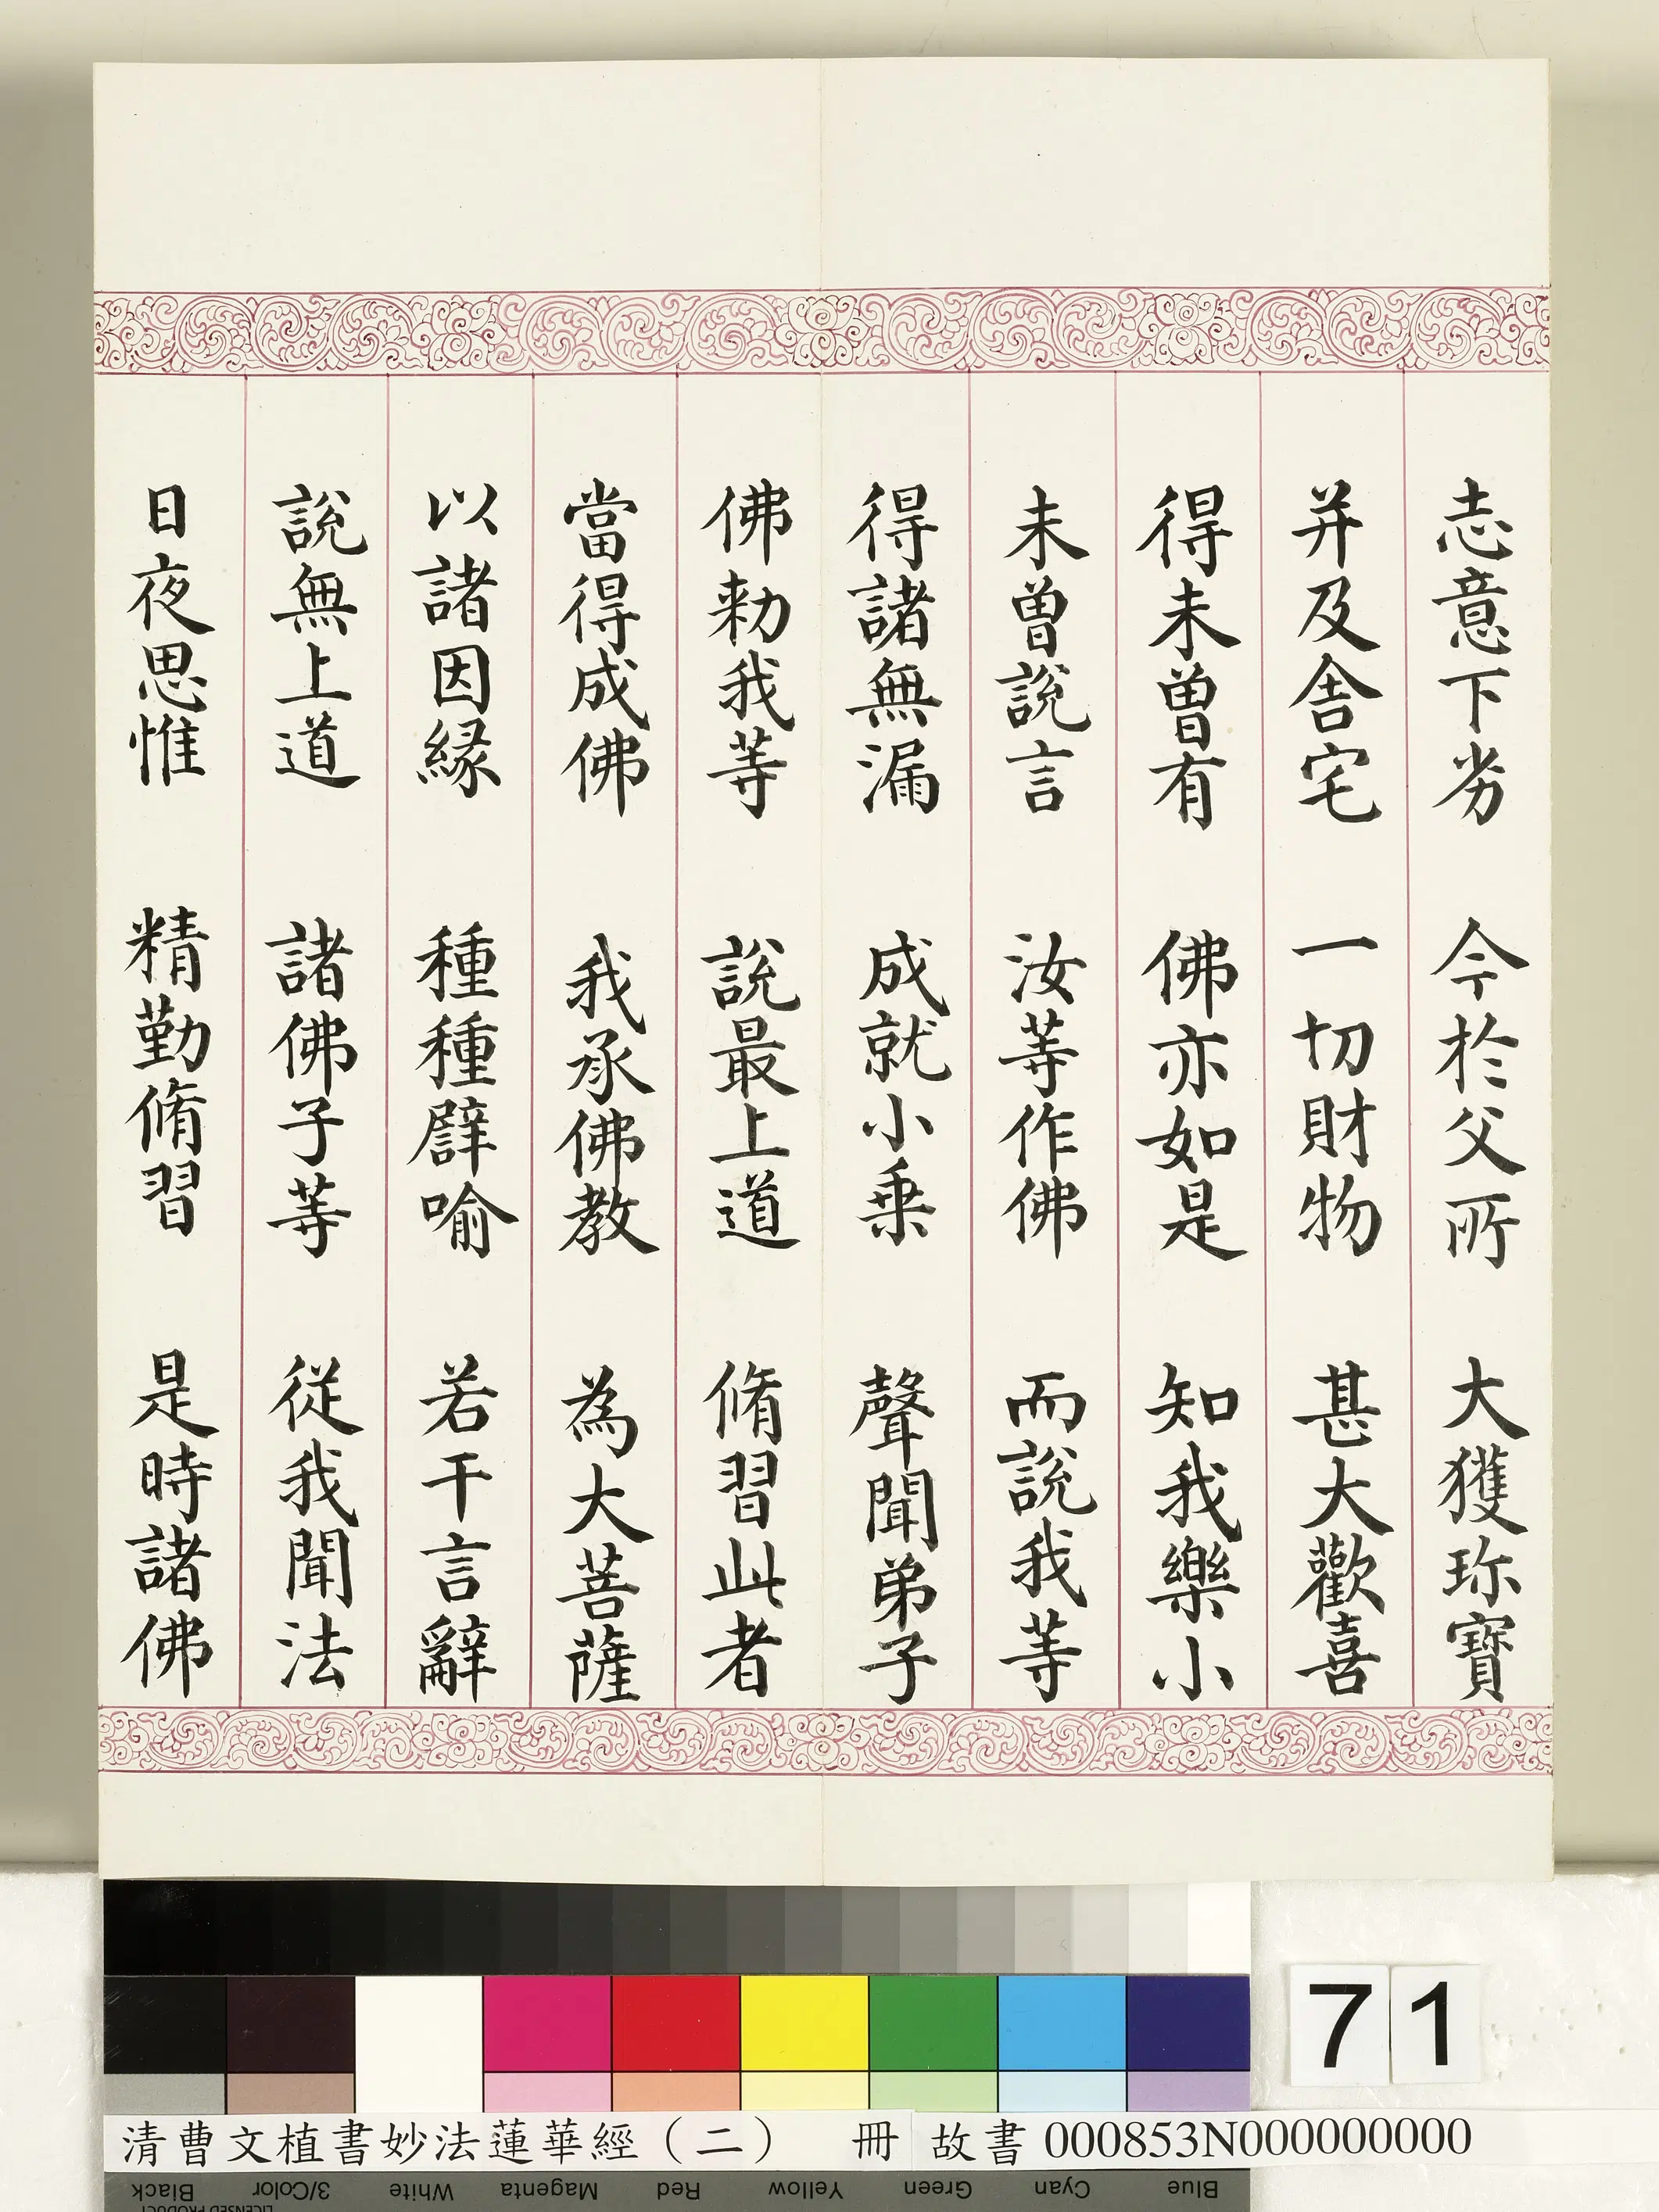 志意下劣 今於父所 大獲珎寶
并及舎宅 一切財物 甚大歡喜
得未曽有 佛亦如是 知我樂小
未曽說言 汝等作佛 而說我等
得諸無漏 成就小乗 聲聞弟子
佛勑我等 說最上道 脩習此者
當得成佛 我承佛教 為大菩薩
以諸因縁 種種譬喻 若干言辭
說無上道 諸佛子等 從我聞法
日夜思惟 精勤脩習 是時諸佛
71
清曹文植書妙法蓮華經（二） 冊 故書 000853N000000000
Black 3/Color White Magenta Red Yellow Green Cyan Blue
LICENSED PRODUCT